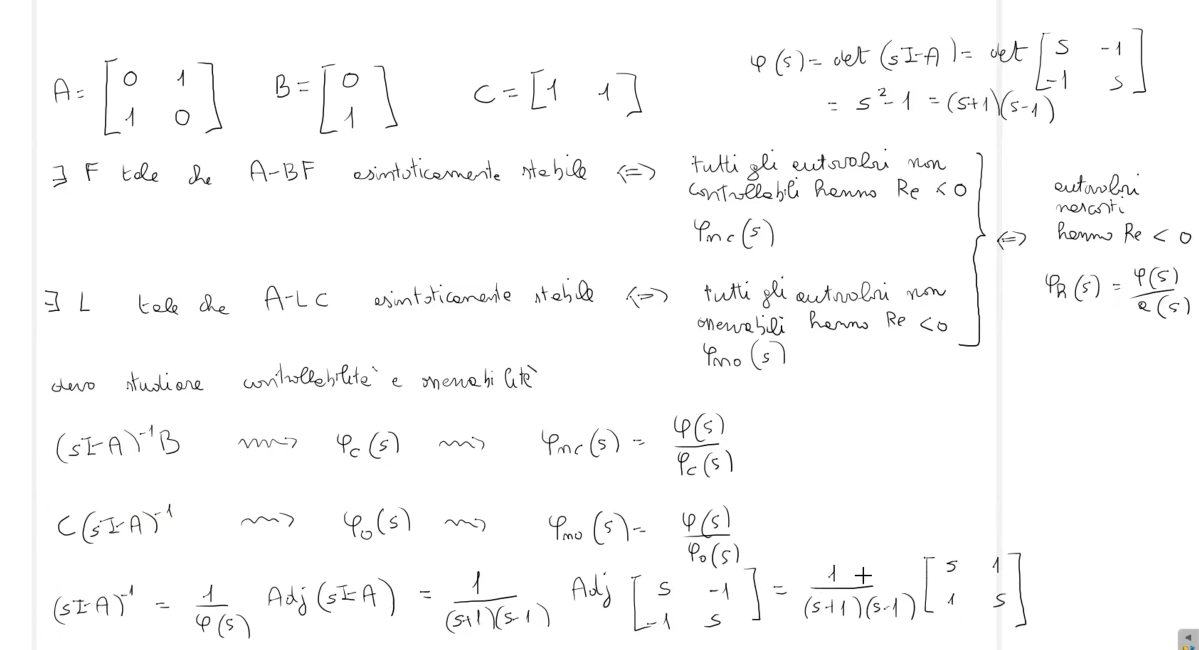 A = [0 1; 1 0] B = [0; 1] C = [1 1]
φ(s) = det (sI-A) = det [s -1; -1 s]
= s² - 1 = (s+1)(s-1)
∃ F tale che A-BF asintoticamente stabile <=> tutti gli autovalori non
controllabili hanno Re < 0
φnc(s)
∃ L tale che A-LC asintoticamente stabile <=> tutti gli autovalori non
osservabili hanno Re < 0
φno(s)
<=> autovalori
nascosti
hanno Re < 0
φR(s) = φ(s)/e(s)
devo studiare controllabilità e osservabilità
(sI-A)⁻¹B ⇝ φc(s) ⇝ φnc(s) = φ(s)/φc(s)
C(sI-A)⁻¹ ⇝ φo(s) ⇝ φno(s) = φ(s)/φo(s)
(sI-A)⁻¹ = 1/φ(s) Adj (sI-A) = 1/((s+1)(s-1)) Adj [s -1; -1 s] = 1/((s+1)(s-1)) [s 1; 1 s]